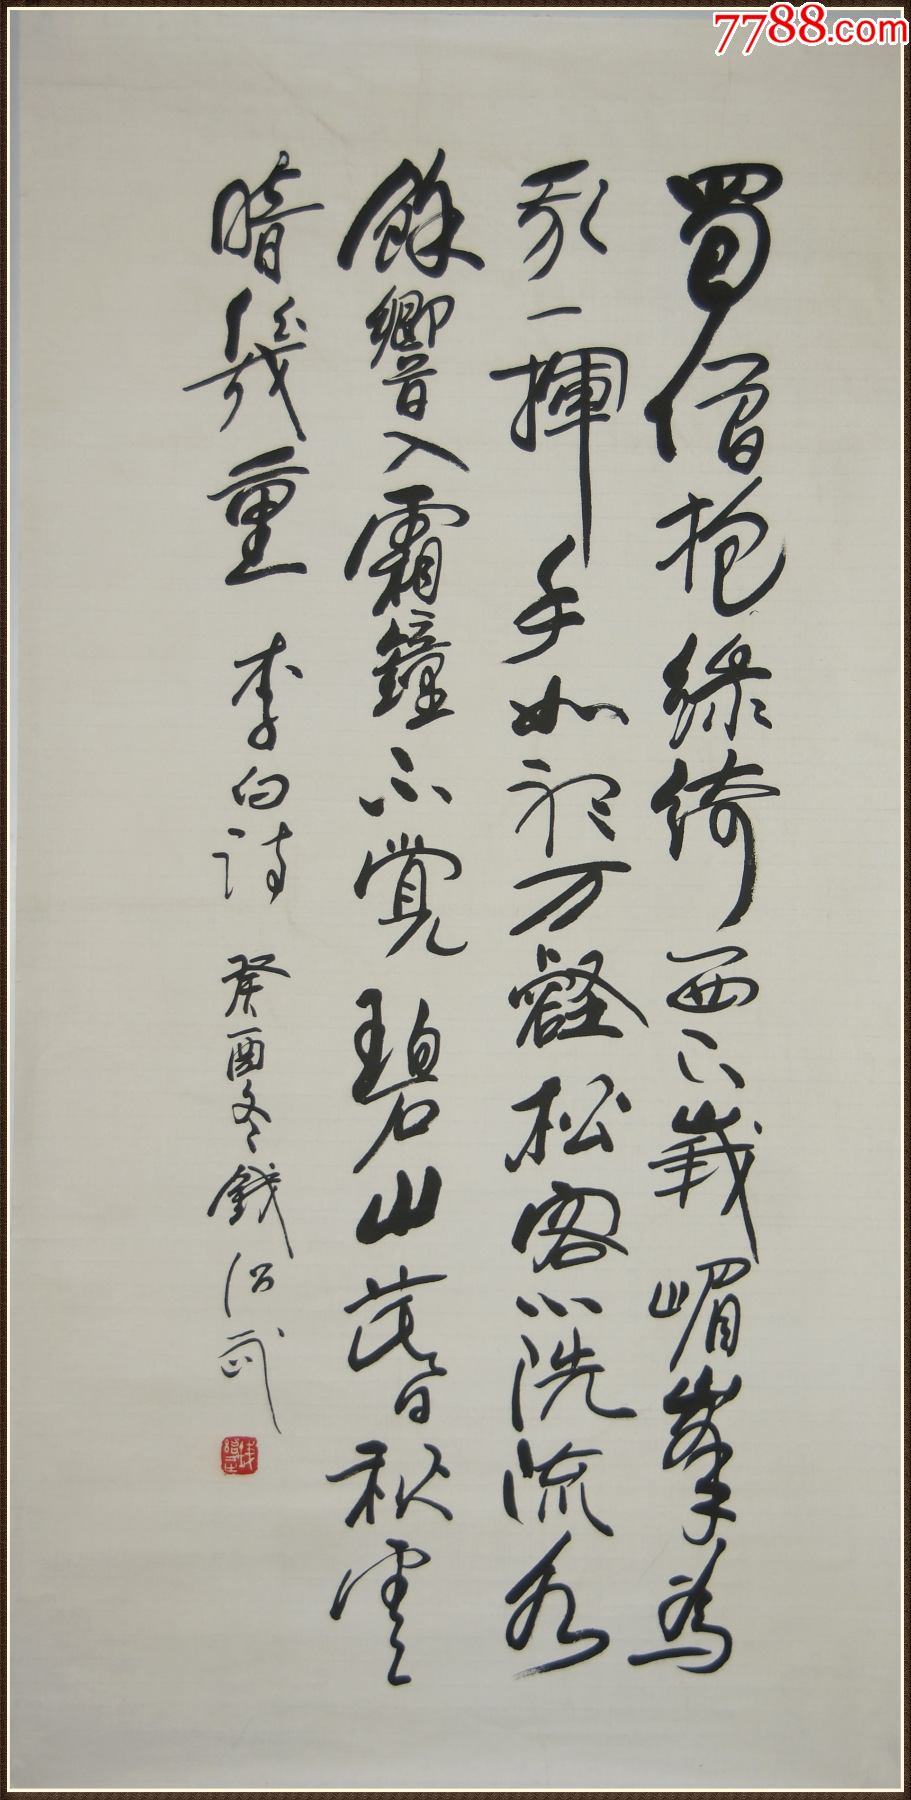 7788.com
蜀僧抱綠綺西下峨嵋峯為
我一揮手如聽万壑松客心洗流水
餘響入霜鐘不覺碧山暮秋雲
暗幾重 李白詩 癸酉冬錢紹武